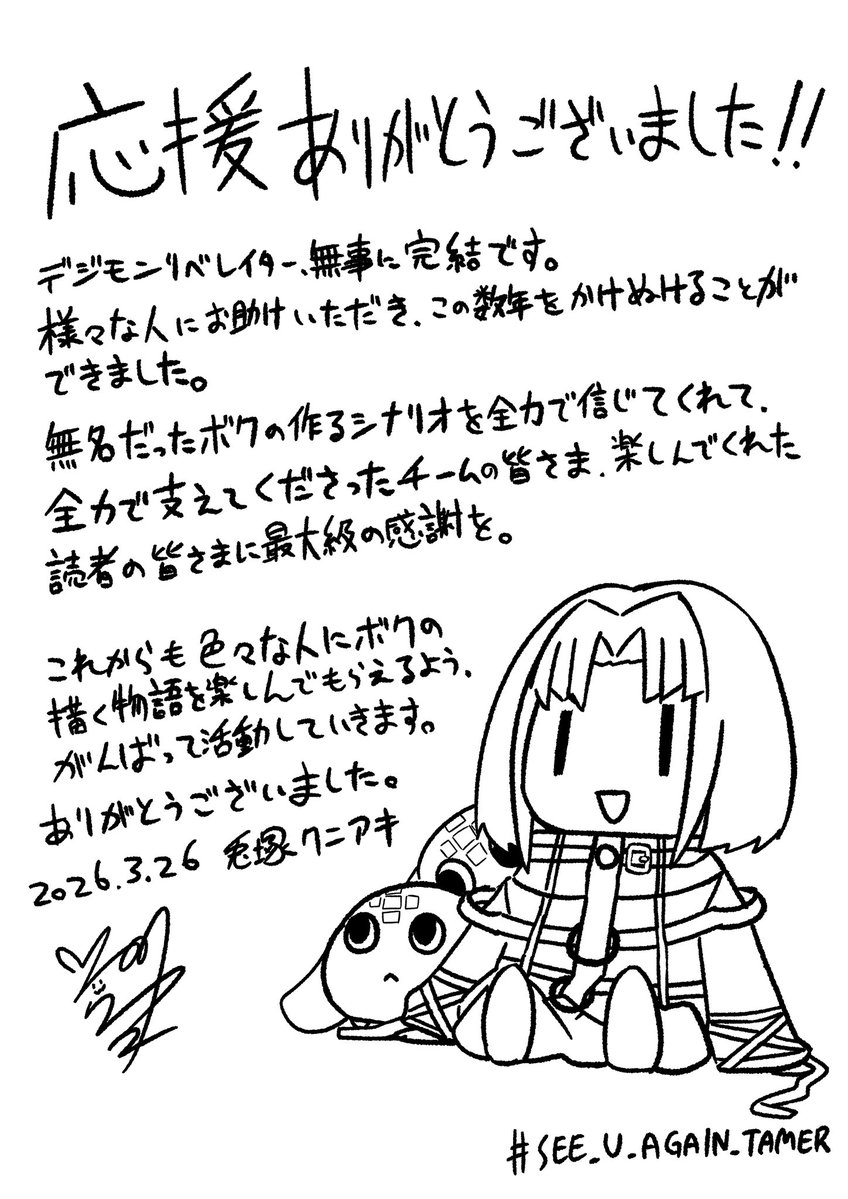 応援ありがとうございました!!
デジモンリベレイター、無事に完結です。
様々な人にお助けいただき、この数年をかけぬけることが
できました。
無名だったボクの作るシナリオを全力で信じてくれて、
全力で支えてくださったチームの皆さま、楽しんでくれた
読者の皆さまに最大級の感謝を。
これからも色々な人にボクの
描く物語を楽しんでもらえるよう、
がんばって活動していきます。
ありがとうございました。
2026.3.26 兎塚クニアキ
#SEE_U_AGAIN_TAMER